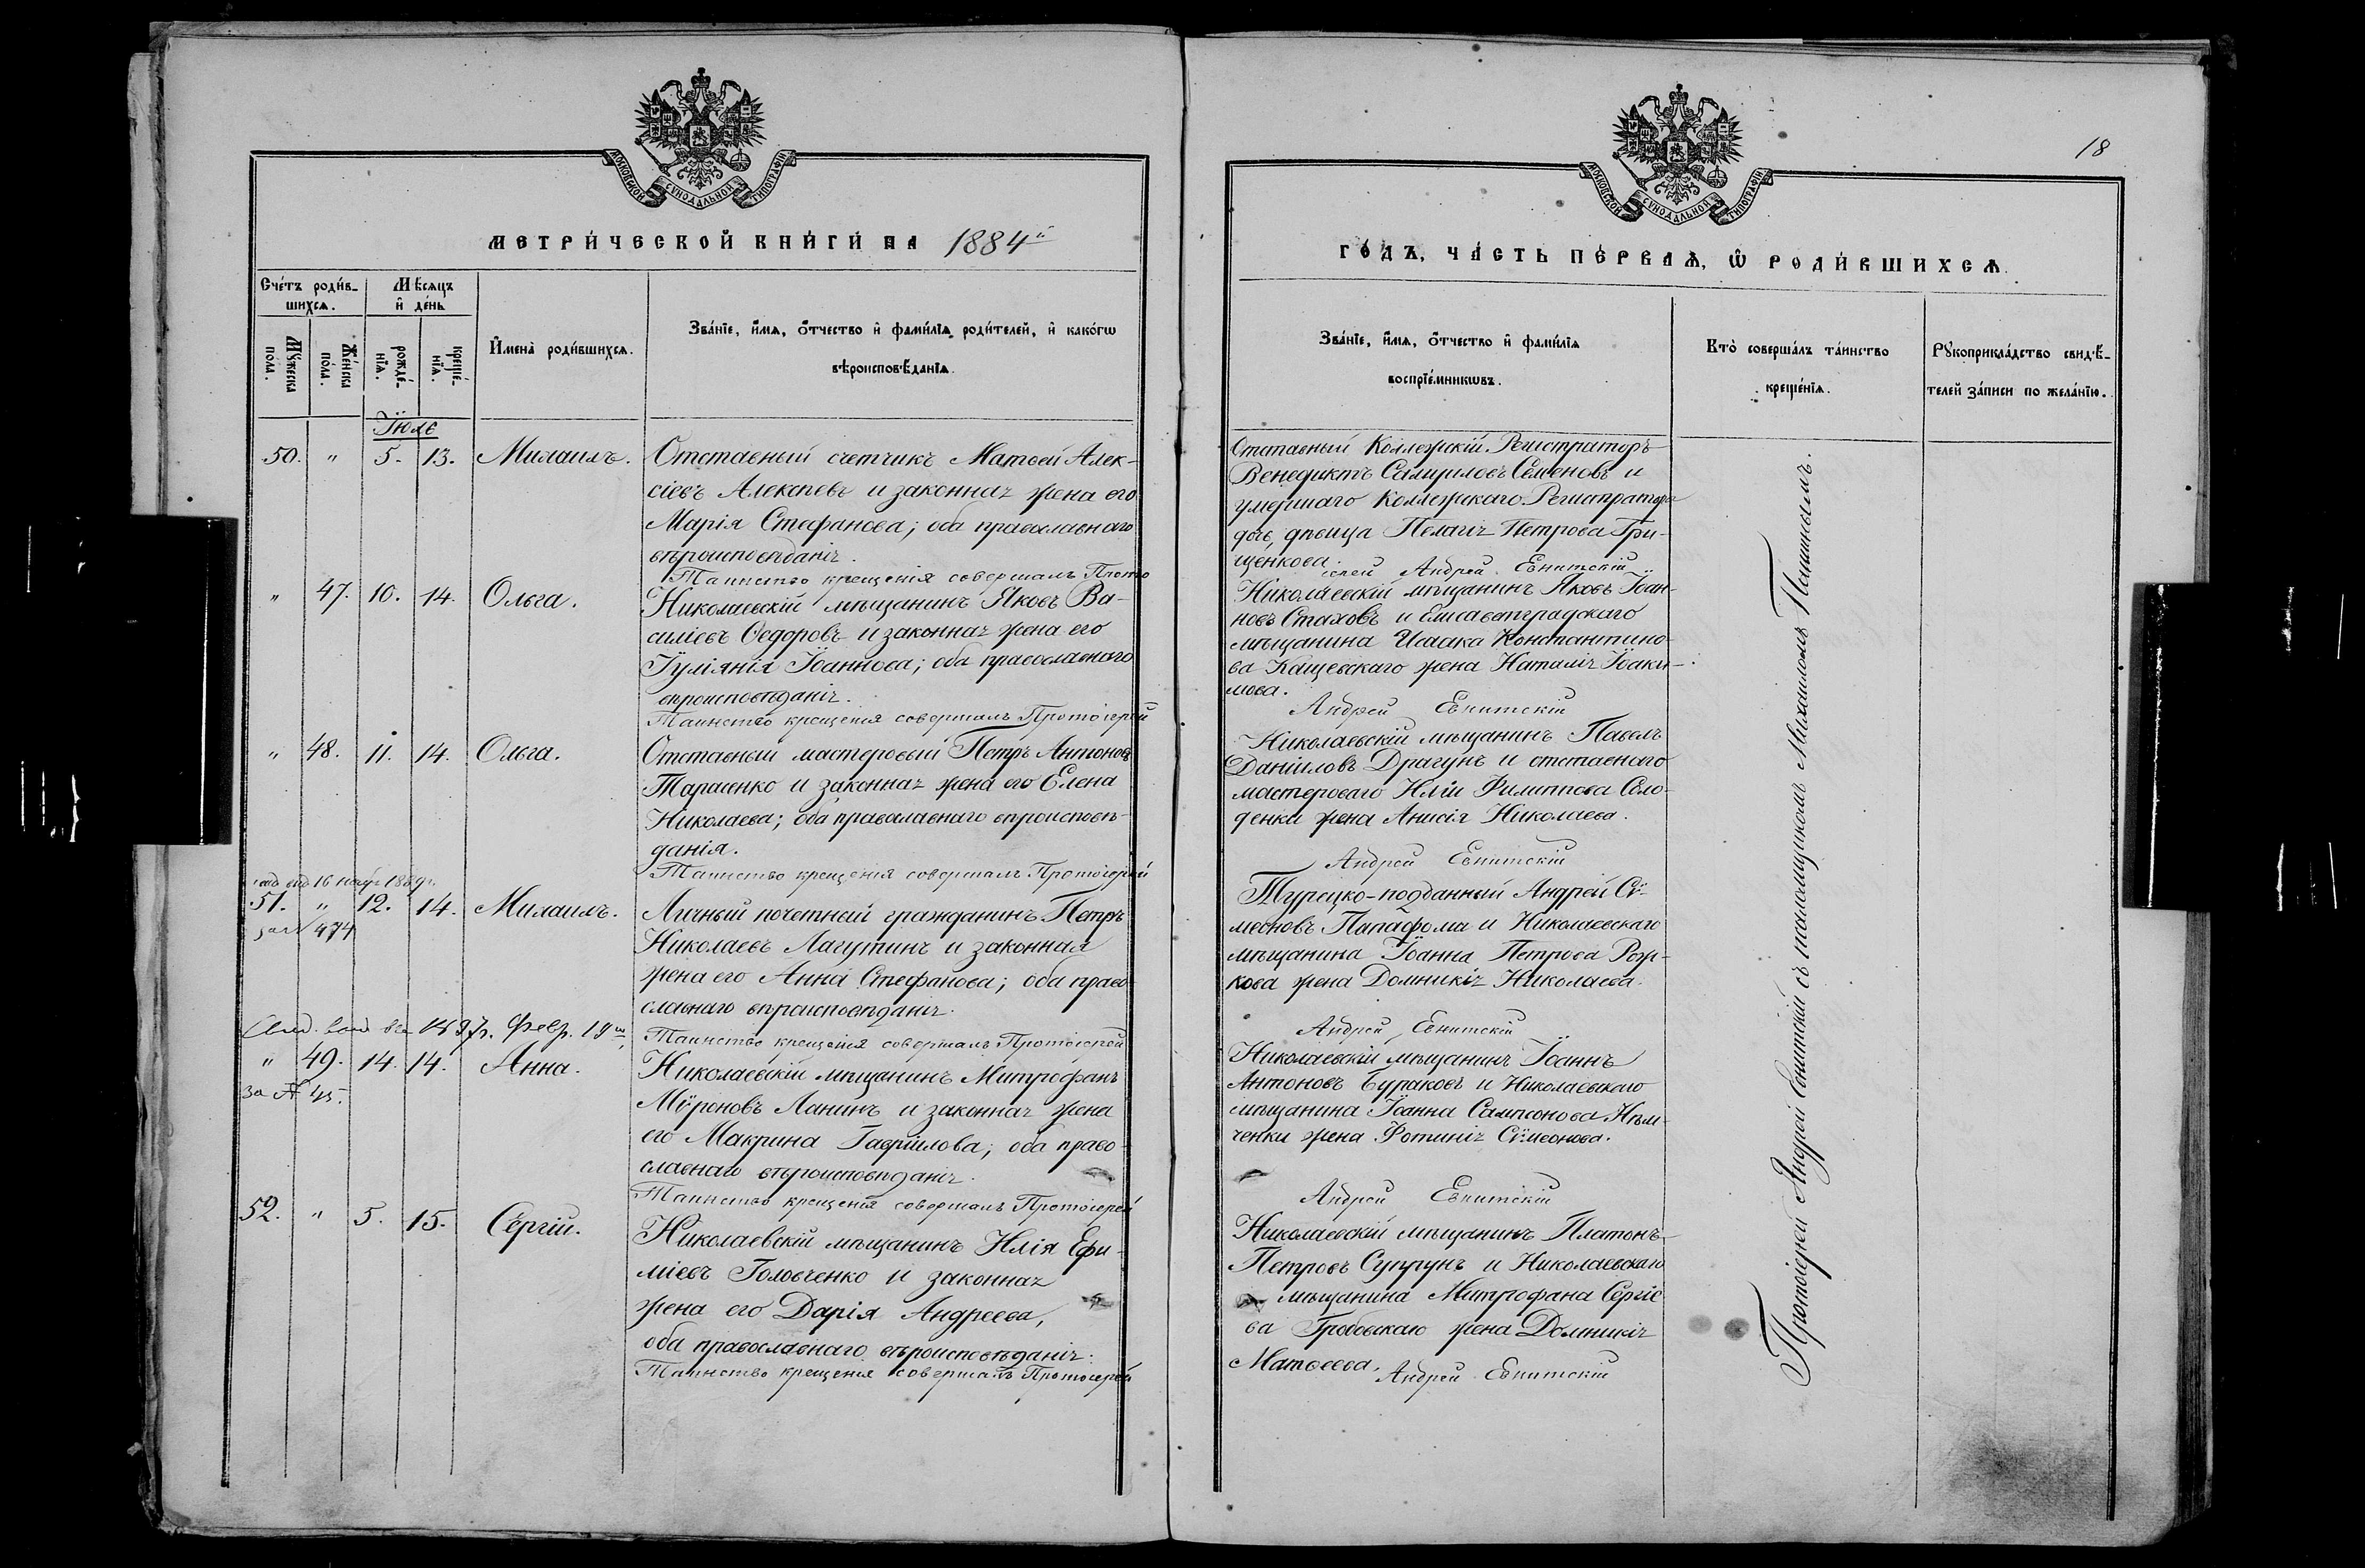 МОСКОВСКОЙ СѴНОДАЛЬНОЙ ТИПОГРАФІИ
МЕТРИ́ЧЕСКОЙ КНИ́ГИ НА 1884й
Сче́тъ роди́в-
шихсѧ.
Мѣ́сѧцъ
и҆ де́нь
Мꙋ́жеска
по́ла.
Же́нска
по́ла.
рожде́-
нїѧ.
креще́-
нїѧ.
И҆мена̀ роди́вшихсѧ.
Зва́нїе, и҆́мѧ, ѻ҆́тчество и҆ фами́лїѧ роди́телей, и҆ како́гѡ
вѣроисповѣ́данїѧ.
Іюль
50. " 5. 13. Михаилъ.
Отставный счетчикъ Матѳей Алек-
сіевъ Алексѣевъ и законная жена его
Марія Стефанова; оба православнаго
вѣроисповѣданія.
Таинство крещенія совершалъ Прото
" 47. 10. 14. Ольга.
Николаевскій мѣщанинъ Яковъ Ва-
силіевъ Ѳедоровъ и законная жена его
Іуліянія Іоаннова; оба православнаго
вѣроисповѣданія.
Таинство крещенія совершалъ Протоіерей
" 48. 11. 14. Ольга.
Отставный мастеровый Петръ Антоновъ
Тарасенко и законная жена его Елена
Николаева; оба православнаго вѣроисповѣ-
данія.
Таинство крещенія совершалъ Протоіерей
16 1889г.
51. " 12. 14. Михаилъ.
474
Личный почетный гражданинъ Петръ
Николаевъ Лагутинъ и законная
жена его Анна Стефанова; оба право-
славнаго вѣроисповѣданія.
Таинство крещенія совершалъ Протоіерей
1897г. Февр. 19
" 49. 14. 14. Анна.
за № 45.
Николаевскій мѣщанинъ Митрофанъ
Мѵроновъ Ланинъ и законная жена
его Макрина Гавріилова; оба право-
славнаго вѣроисповѣданія.
Таинство крещенія совершалъ Протоіерей
52. " 5. 15. Сергій.
Николаевскій мѣщанинъ Илія Ефи-
міевъ Головченко и законная
жена его Дарія Андреева,
оба православнаго вѣроисповѣданія.
Таинство крещенія совершалъ Протоіерей
18
МОСКОВСКОЙ СѴНОДАЛЬНОЙ ТИПОГРАФІИ
ГО́ДЪ, ЧА́СТЬ ПЕ́РВАѦ, Ѡ҆ РОДИ́ВШИХСѦ.
Зва́нїе, и҆́мѧ, ѻ҆́тчество и҆ фами́лїѧ
воспрїе́мникѡвъ.
Кто̀ соверша́лъ та́инство
креще́нїѧ.
Рꙋкоприкла́дство свидѣ́-
телей за́писи по жела́нїю.
Отставный Коллежскій Регистраторъ
Венедиктъ Семеновъ и
умершаго Коллежскаго Регистратора
дочь, дѣвица Пелагія Петрова Гри-
щенкова.
іерей Андрей Евнитскій
Николаевскій мѣщанинъ Яковъ Іоан-
новъ Стаховъ и Елисаветградскаго
мѣщанина Исаака Константино-
ва Кащевскаго жена Наталія Іоаки-
мова.
Андрей Евнитскій
Николаевскій мѣщанинъ Павелъ
Даніиловъ Драгунъ и отставнаго
мастероваго Иліи Филиппова Соло-
денки жена Анисія Николаева.
Андрей Евнитскій
Турецко-подданный Андрей Сѵ-
меоновъ Папафома и Николаевскаго
мѣщанина Іоанна Петрова Рож-
кова жена Домникія Николаева.
Андрей Евнитскій
Николаевскій мѣщанинъ Іоаннъ
Антоновъ Бураковъ и Николаевскаго
мѣщанина Іоанна Сампсонова Нѣм-
ченки жена Фотинія Сѵмеонова.
Андрей Евнитскій
Николаевскій мѣщанинъ Платонъ
Петровъ Супрунъ и Николаевскаго
мѣщанина Митрофана Сергіе
ва Гробовскаго жена Домникія
Матѳеева.
Андрей Евнитскій
Протоіерей Андрей Евнитскій съ псаломщикомъ Михаиломъ